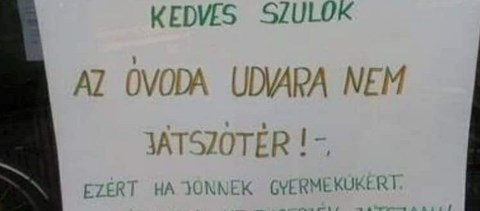 KEDVES SZÜLŐK
AZ ÓVODA UDVARA NEM
JÁTSZÓTÉR!-,
EZÉRT HA JÖNNEK GYERMEKÜKÉRT.